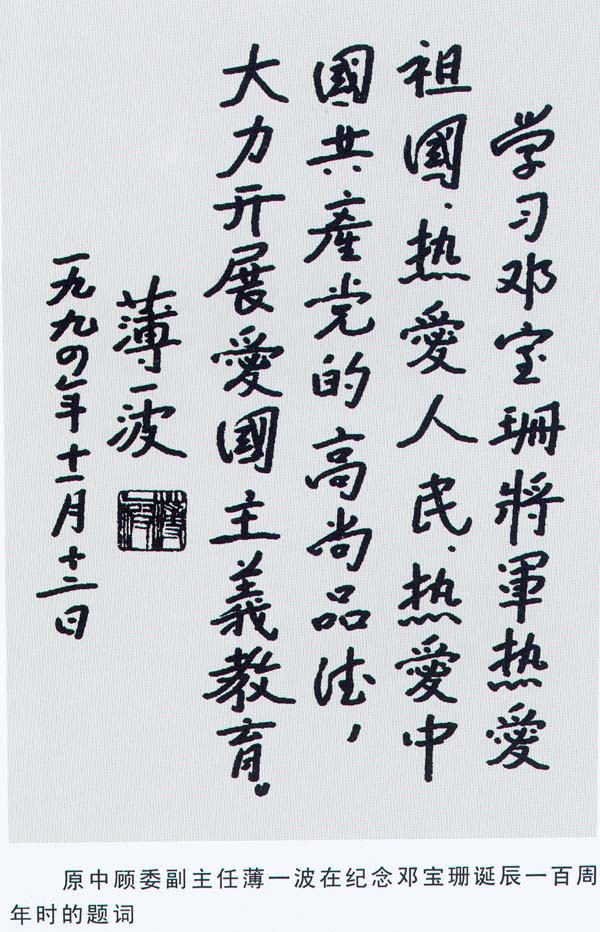 学习邓宝珊將軍热愛
祖國·热愛人民·热愛中
國共產党的高尚品德，
大力开展愛國主義教育。
薄一波
一九九四年十一月十二日
原中顾委副主任薄一波在纪念邓宝珊诞辰一百周
年时的题词